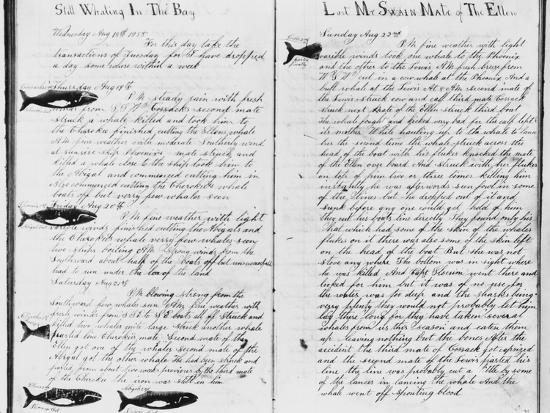 Still Whaling In The Bay
Wednesday Aug 18th 1858
For this day take the
transactions of Tuesday for I have dropped
a day some where within a week
Thursday Aug 19th
P.M. steady rain with fresh
winds from S.S.W. Cossacks second mate
struck a whale killed and took him to
the Cherokee finished cutting the Ellens whale
A.M. fine weather with moderate Southerly wind
at sunrise ship Phoenix mate struck and
killed a whale close to the ship took him to
the Abigal and commenced cutting him in
commenced cutting the Cherokees whale
boats off but very few whales seen
Friday Aug 20th
P.M. fine weather with light
winds finished cutting the Abigals and
the Cherokees whale very few whales seen
two ships boiling A.M. Strong winds from the
Southward about half of the boats off but unsuccessful
had to run under the lea of the land
Saturday Aug 21st
P.M. Blowing strong from the
Southward few whales seen A.M. fine weather with
fresh winds from S.S.E. to S.E. boats all off Struck and
killed two whales quite large Struck another whale
parted line Cherokees mate. Second mate of the
Ellen got one of the whales second mate of the
Abigal got the other whale He had been struck and
parted from about five weeks previous by the third mate
of the Cherokee the iron was still in him
Lost Mr Swain Mate of The Ellen
Sunday Aug 22nd
P.M. fine weather with light
variable winds took one whale to the Phoenix
and the other to the Lewis A.M. fresh breeze from
W.S.W. cut in a cow whale at the Phoenix And a
bull whale at the Lewis At 8 A.M. second mate of
the Lewis struck cow and calf third mate Cossack
struck not fast of the Ellen struck third boat
the whale fought and kicked very bad for the calf left
its mother While hauling up to the whale to lance
her the second time the whale struck across the
head of the boat with his flukes knocked the mate of
the Ellen over board And struck with her flukes
on top of him two or three times killing him
instantly he was afterwards seen foul in some
of the lines but he slipped out of it and
sunk before any one could get hold of him
they cut his boats line directly They found only his hat
that which had some of the skin of the whales
flukes on it there was also some of the skin left
on the head of the boat But she was not
stove any while The Ellen was in sight where
he was killed And Capt Slocum went there and
looked for him but it was of no use for
the water was too deep and the sharks being
very plenty they would not probably let him
lay there long for they have taken several
whales from us this season and eaten them
up leaving nothing but the bones After the
accident the third mate of Cossack got capsized
and the second mate of the Lewis parted his
line the line was probably cut of the by some
of the lances in lancing the whale And the
whale went off spouting blood